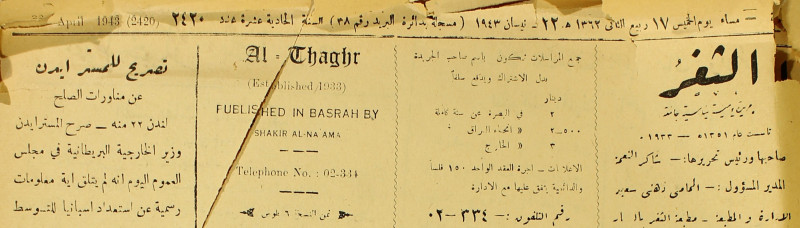 مساء يوم الخميس ١٧ ربيع الثاني ١٣٦٢ هـ ٢٢ - نيسان ١٩٤٣ (مسجلة بدائرة البريد رقم ٣٨) السنة الحادية عشرة عدد ٢٤٢٠ (2420) April 1943
الثغر
جريدة يومية سياسية جامعة
تأسست عام ١٣٥١ه - ١٩٣٣ م
صاحبها ورئيس تحريرها: - شاكر النعمة
المدير المسؤول: - المحامي
الادارة و المطبعة - مطبعة الثغر
جميع المراسلات تكون باسم صاحب الجريدة
بدل الاشتراك ويدفع سلفاً
دينار
٢ في البصرة عن سنة كاملة
٢-٥٠٠ » انحاء العراق »
٣ » الخارج »
الاعلانات - اجرة العقد الواحد ١٥٠ فلساً
والدائمية يتفق عليها مع الادارة
رقم التلفون: - ٣٣٤-٠٢
Al - Thaghr
(Established 1933)
PUBLISHED IN BASRAH BY
SHAKIR AL-NAAMA
Telephone No. : 02-334
ثمن النسخة ٦ فلوس
تصريح للمستر ايدن
عن مناورات الصلح
لندن ٢٢ منه - صرح المستر ايدن
وزير الخارجية البريطانية في مجلس
العموم اليوم انه لم يتلق اية معلومات
رسمية عن استعداد اسبانيا للتوسط